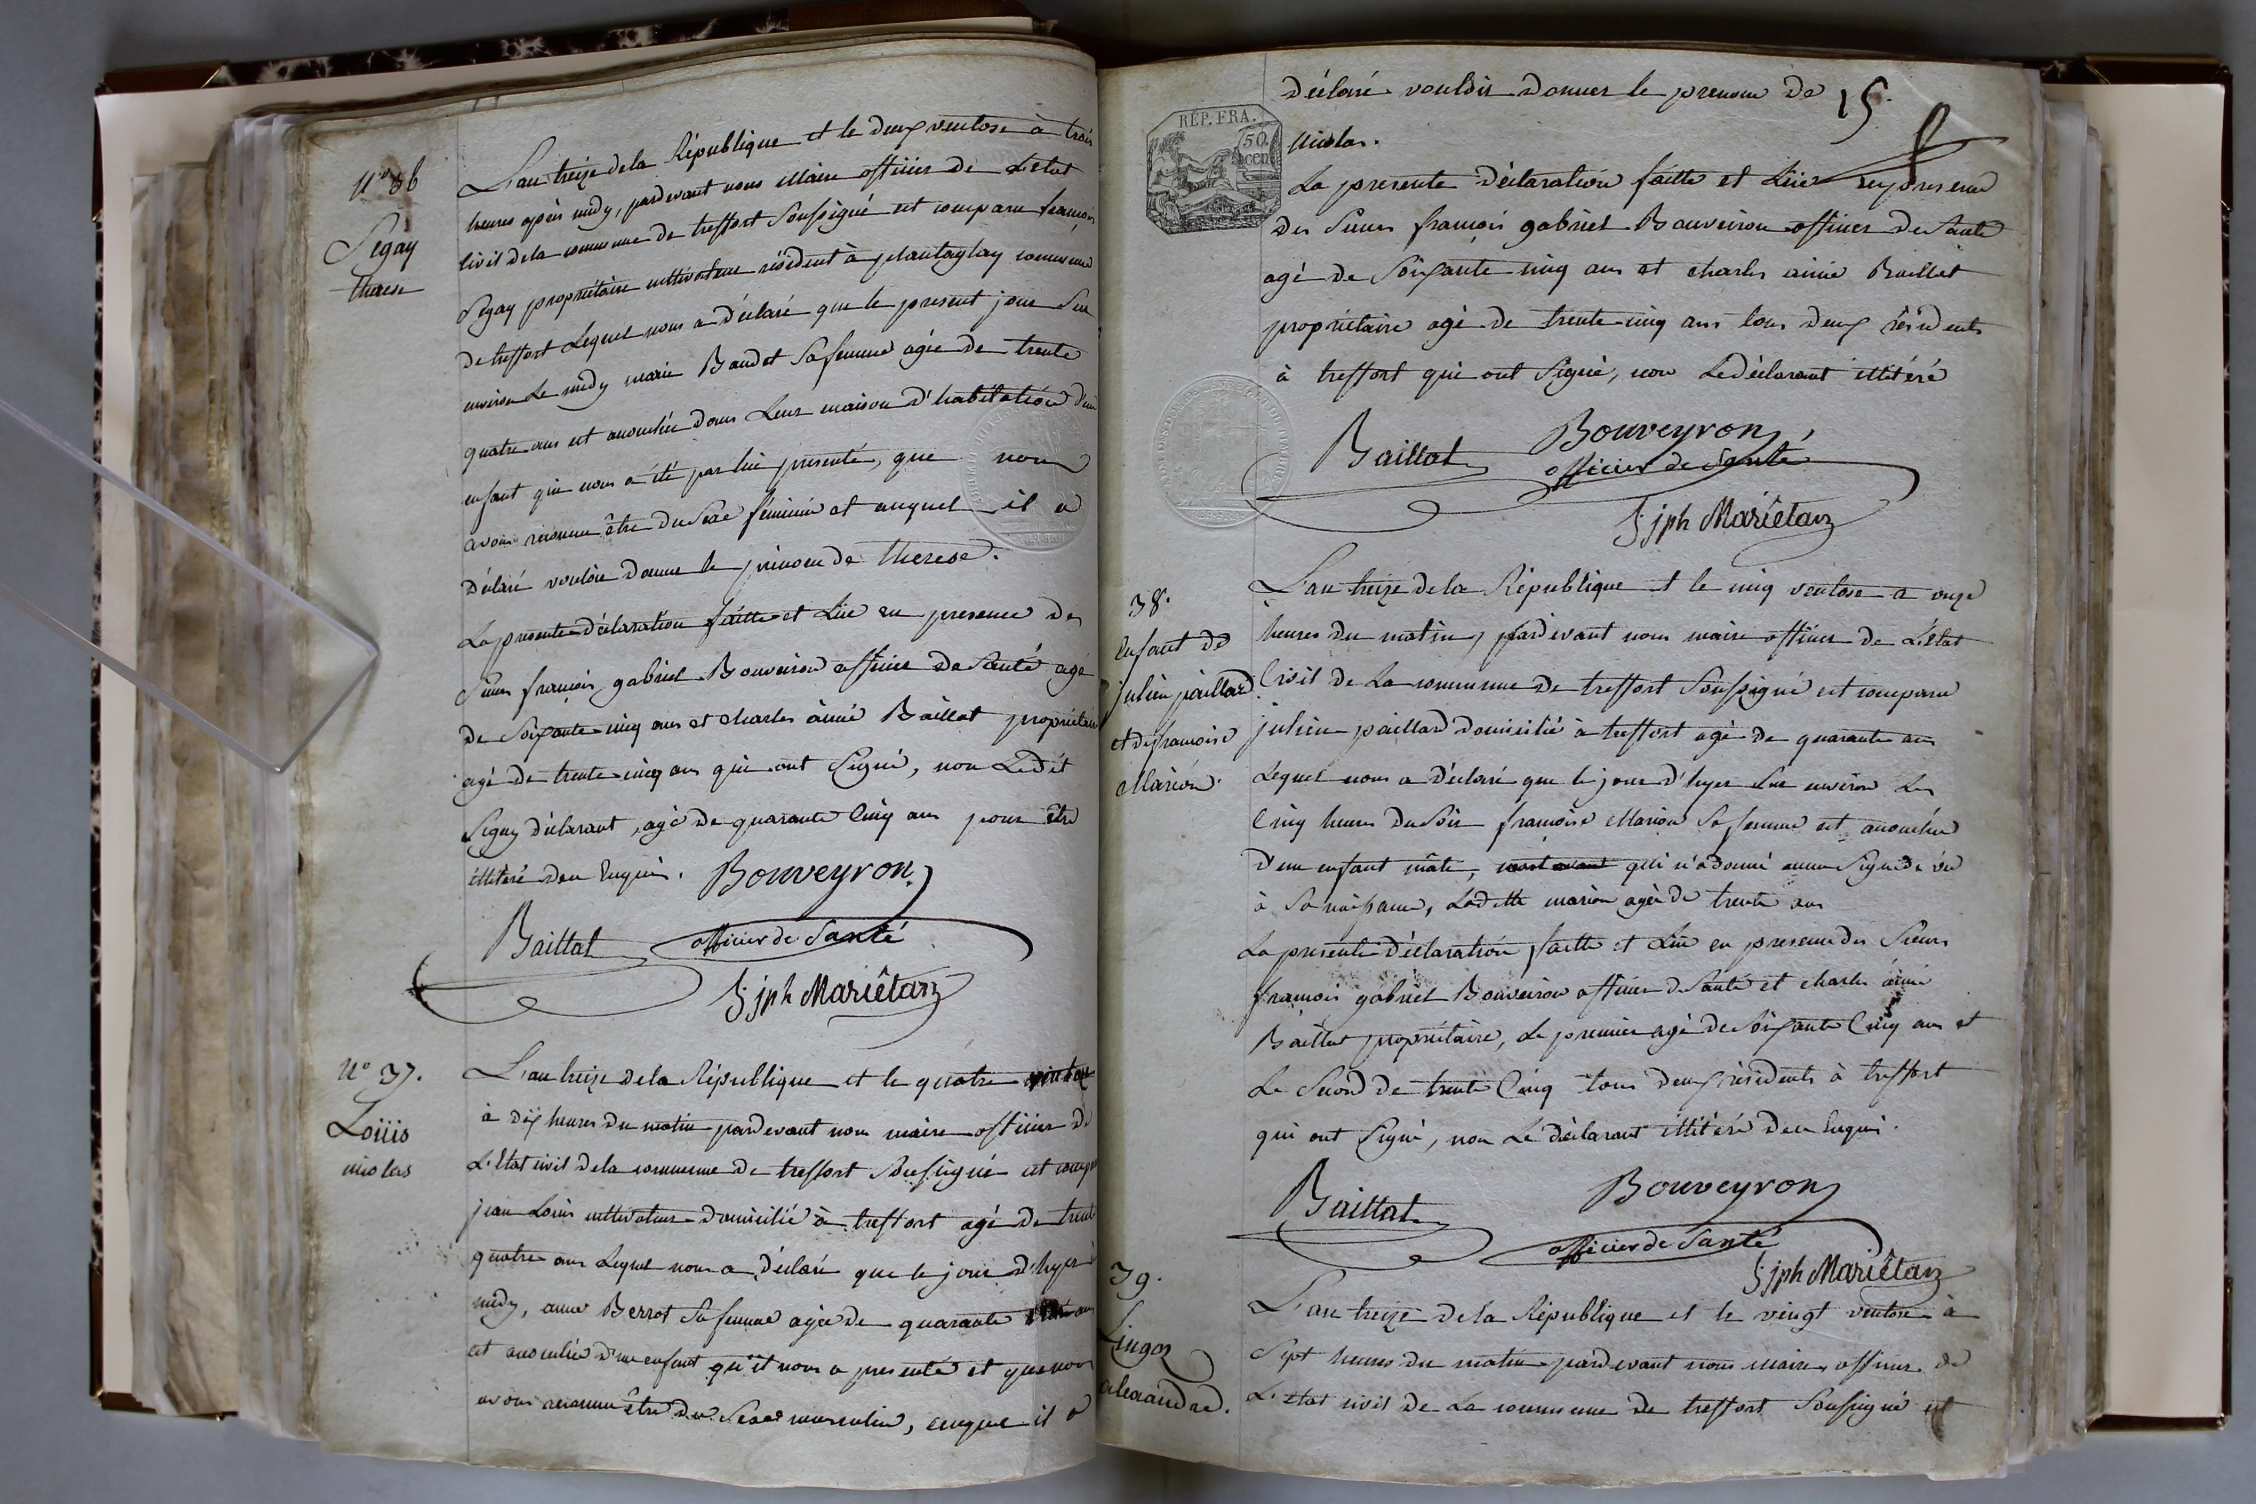 N° 36
Pegay
therese
L'an treize de la République et le deux ventose à trois
heures après midy, pardevant nous Maire officier de L'etat
Civil de la commune de treffort Soussigné est comparu françois
Pegay propriétaire cultivateur résident à plantaglay commune
de treffort Lequel nous a déclaré que le present jour Sur
environ Le midy marie Baudet Sa femme agée de trente
quatre ans est accouchée dans Leur maison d'habitation d'un
enfant qui nous a été par lui presenté, que nous
avons reconnu être du Sexe féminin et auquel il a
déclaré vouloir donner le prenom de therese.
La presente déclaration faitte et Lüe en presence des
Sieurs françois gabriel Bouveiron officier de Santé agé
de Soixante cinq ans et charles aimé Baillat propriétaire
agé de trente cinq ans qui ont Signé, non Ledit
Pegay déclarant, agé de quarante Cinq ans pour être
illitéré de ce Enquis. Bouveyron
Baillat officier de Santé
J: jph Mariêtan
N° 37.
Loüis
nicolas
L'an treize de la République et le quatre ventose
à dix heures du matin pardevant nous maire officier de
L'Etat civil de la commune de treffort Soussigné est comparu
jean Louis cultivateur domicilié à treffort agé de trente
quatre ans Lequel nous a déclaré que le jour d'hyer à
midy, anne Berrot Sa femme agée de quarante ans
est accouchée d'un enfant qu'il nous a presenté et que nous
avons reconnu être du Sexe masculin, auquel il a
déclaré vouloir donner le prenom de 15.
Nicolas.
REP. FRA.
50 cen
La presente déclaration faitte et Lüe en presence
des Sieurs françois gabriel Bouveiron officier de Santé
agé de Soixante cinq ans et charles aimé Baillat
propriétaire agé de trente cinq ans tous deux résidents
à treffort qui ont Signé, non Le déclarant illitéré
Baillat Bouveyron
officier de Santé
J: jph Mariêtan
38.
Enfant de
julien paillard
et de françoise
Marion.
L'an treize de la République et le cinq ventose a onze
heures du matin, pardevant nous maire officier de L'Etat
Civil de La commune de treffort Soussigné est comparu
julien paillard domicilié à treffort agé de quarante ans
Lequel nous a déclaré que le jour d'hyer Sur environ Les
Cinq heures du Soir françoise Marion Sa femme est accouchée
d'un enfant mâle, qui n'a donné aucun Signe de vie
à Sa naissance, Ladette marion agée de trente ans
La presente déclaration faitte et Lüe en presence des Sieurs
françois gabriel Bouveiron officier de Santé et charles aimé
Baillat propriétaire, Le premier agé de Soixante Cinq ans et
Le Second de trente Cinq tous deux résidents à treffort
qui ont Signé, non Le déclarant illitéré de ce Enquis.
Baillat Bouveyron
officier de Santé
J: jph Mariêtan
39.
Lingon
alexandre.
L'an treize de la République et le vingt ventose à
Sept heures du matin pardevant nous maire, officier de
L'Etat civil de La commune de treffort Soussigné est